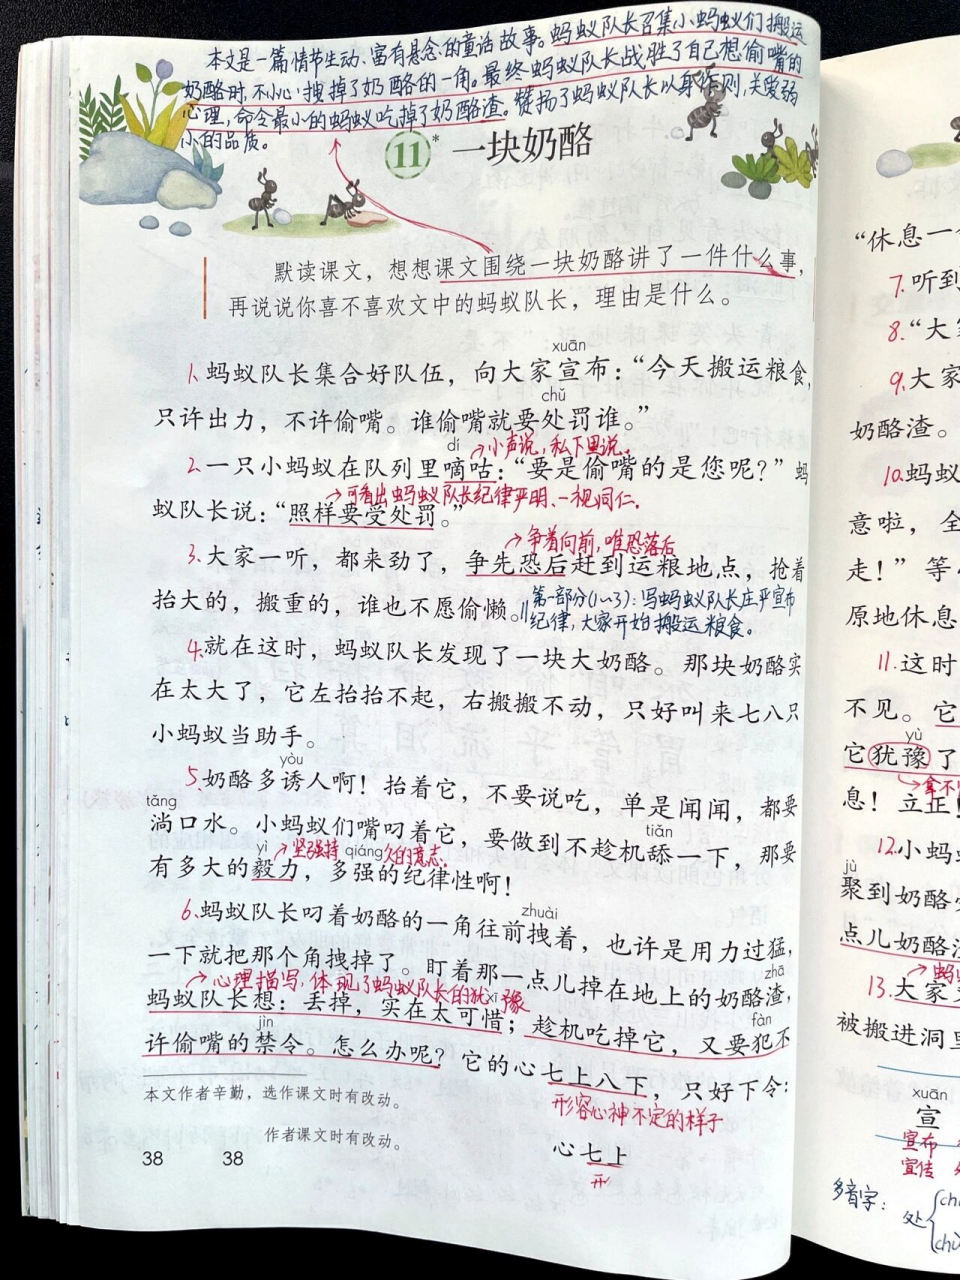 本文是一篇情节生动、富有悬念的童话故事。蚂蚁队长召集小蚂蚁们搬运
奶酪时,不小心拽掉了奶酪的一角。最终蚂蚁队长战胜了自己想偷嘴的
心理,命令最小的蚂蚁吃掉了奶酪渣。赞扬了蚂蚁队长以身作则,关爱弱
小的品质。
11* 一块奶酪
默读课文，想想课文围绕一块奶酪讲了一件什么事，
再说说你喜不喜欢文中的蚂蚁队长，理由是什么。
xuān
1.蚂蚁队长集合好队伍，向大家宣布：“今天搬运粮食，
chǔ
只许出力，不许偷嘴。谁偷嘴就要处罚谁。”
dí
小声说，私下里说。
2.一只小蚂蚁在队列里嘀咕：“要是偷嘴的是您呢？”蚂
可看出蚂蚁队长纪律严明、一视同仁.
蚁队长说：“照样要受处罚。”
争着向前,唯恐落后
3.大家一听，都来劲了，争先恐后赶到运粮地点，抢着
抬大的，搬重的，谁也不愿偷懒。
第一部分(1~3)：写蚂蚁队长庄严宣布
纪律,大家开始搬运粮食。
4.就在这时，蚂蚁队长发现了一块大奶酪。那块奶酪实
在太大了，它左抬抬不起，右搬搬不动，只好叫来七八只
小蚂蚁当助手。
yòu
5.奶酪多诱人啊！抬着它，不要说吃，单是闻闻，都要
tǎng
淌口水。小蚂蚁们嘴叼着它，要做到不趁机舔一下，那要
tiǎn
yì
坚强持久的意志.
qiáng
有多大的毅力，多强的纪律性啊！
6.蚂蚁队长叼着奶酪的一角往前拽着，也许是用力过猛，
zhuài
一下就把那个角拽掉了。盯着那一点儿掉在地上的奶酪渣，
zhā
心理描写,体现了蚂蚁队长的犹豫
xī
蚂蚁队长想：丢掉，实在太可惜；趁机吃掉它，又要犯不
jìn
fàn
许偷嘴的禁令。怎么办呢？它的心七上八下，只好下令：
形容心神不定的样子
本文作者辛勤，选作课文时有改动。
作者课文时有改动。
心七上
38
38
“休息一
7.听到
8.“大
9.大家
奶酪渣。
10.蚂蚁
意啦，全
走！”等
原地休息
11.这时
不见。它
yù
它犹豫了
拿不
息！立正
12.小蚂
jù
聚到奶酪
点儿奶酪
13.大家
被搬进洞里
xuān
宣
宣布
宣传
多音字：处